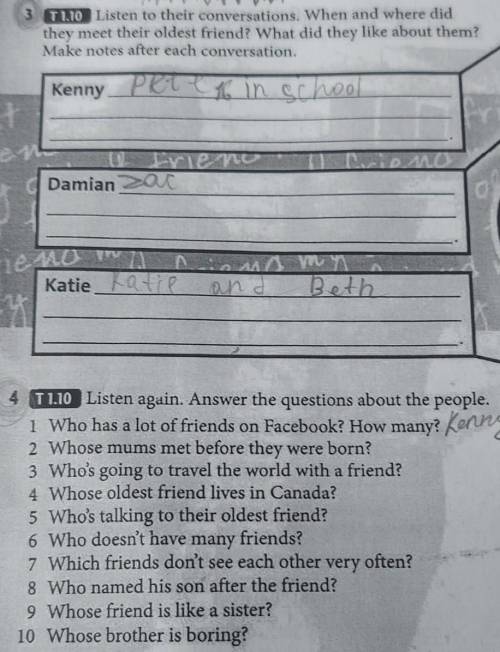 3 T 1.10 Listen to their conversations. When and where did
they meet their oldest friend? What did they like about them?
Make notes after each conversation.
Kenny Pete in school
Damian zac
Katie Katie and Beth
4 T 1.10 Listen again. Answer the questions about the people.
1 Who has a lot of friends on Facebook? How many? Kenny
2 Whose mums met before they were born?
3 Who's going to travel the world with a friend?
4 Whose oldest friend lives in Canada?
5 Who's talking to their oldest friend?
6 Who doesn't have many friends?
7 Which friends don't see each other very often?
8 Who named his son after the friend?
9 Whose friend is like a sister?
10 Whose brother is boring?